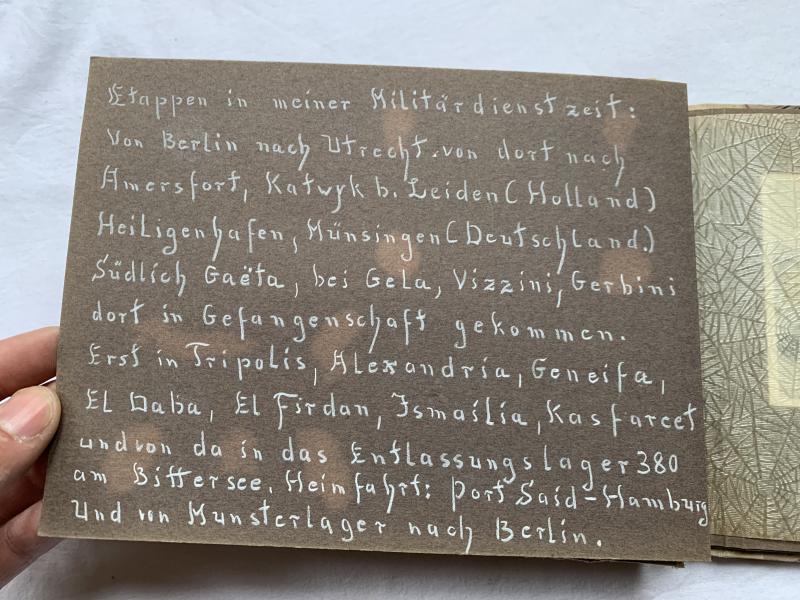 Etappen in meiner Militärdienstzeit:
Von Berlin nach Utrecht. von dort nach
Amersfort, Katwyk b. Leiden (Holland)
Heiligenhafen, Münsingen (Deutschland.)
Südlich Gaëta, bei Gela, Vizzini, Gerbini
dort in Gefangenschaft gekommen.
Erst in Tripolis, Alexandria, Geneifa,
El Daba, El Firdan, Ismailia, Kasfareet
und von da in das Entlassungslager 380
am Bittersee. Heimfahrt: Port Said - Hamburg
Und von Munsterlager nach Berlin.